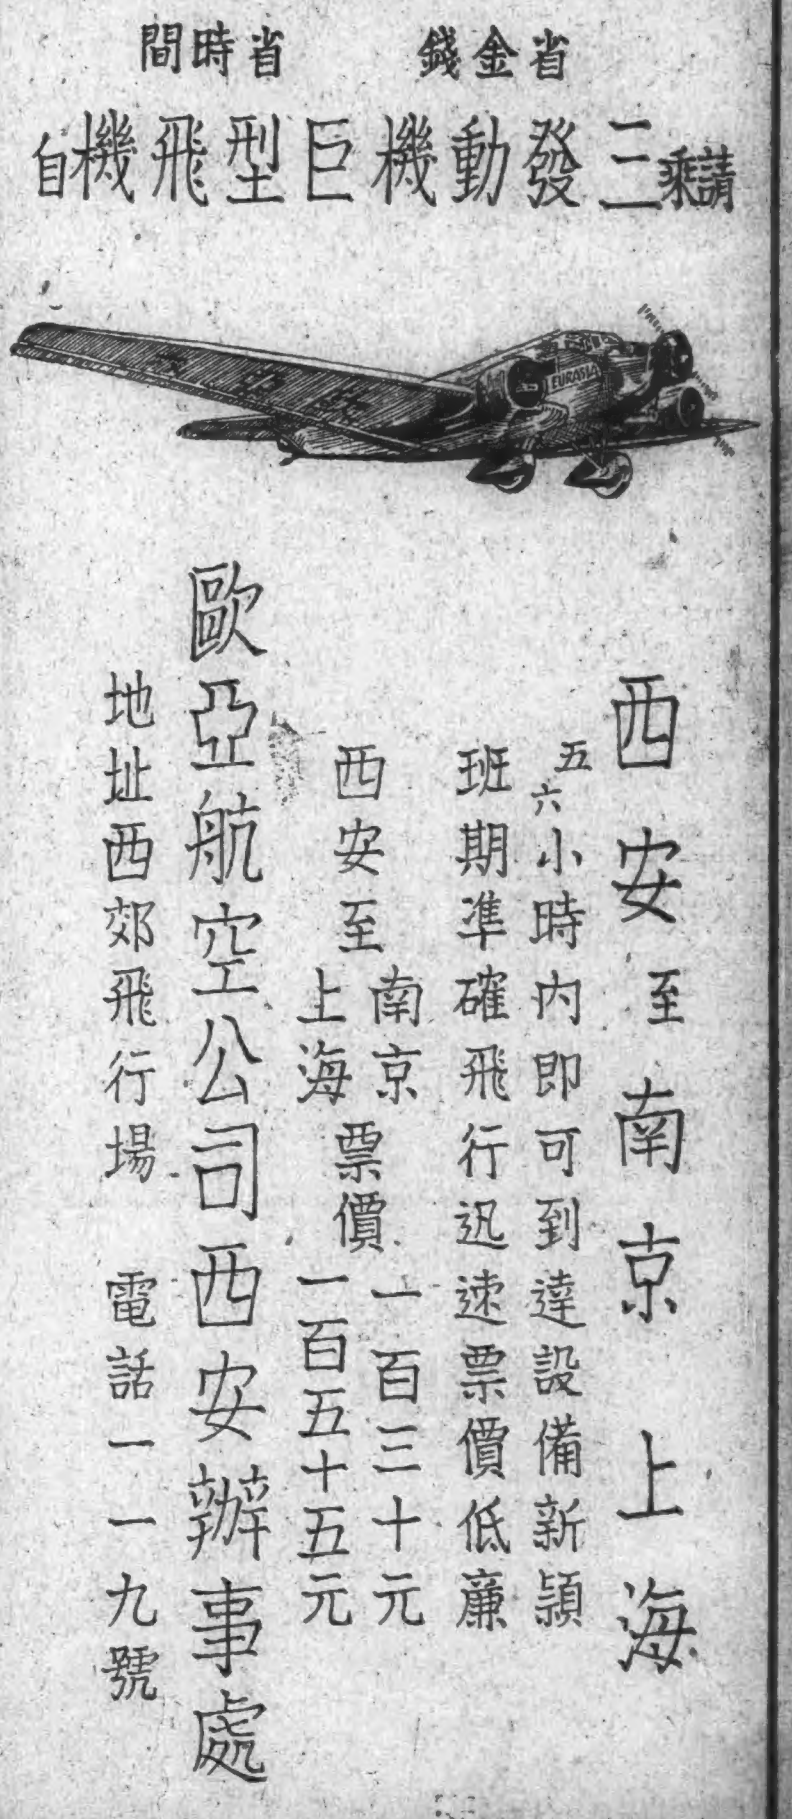 省金錢　省時間
請乘三發動機巨型飛機自
EURASIA
西安至南京　上海
五六小時內即可到達設備新穎
班期準確飛行迅速票價低廉
西安至南京上海票價一百三十元一百五十五元
歐亞航空公司西安辦事處
地址西郊飛行場　電話一一九號